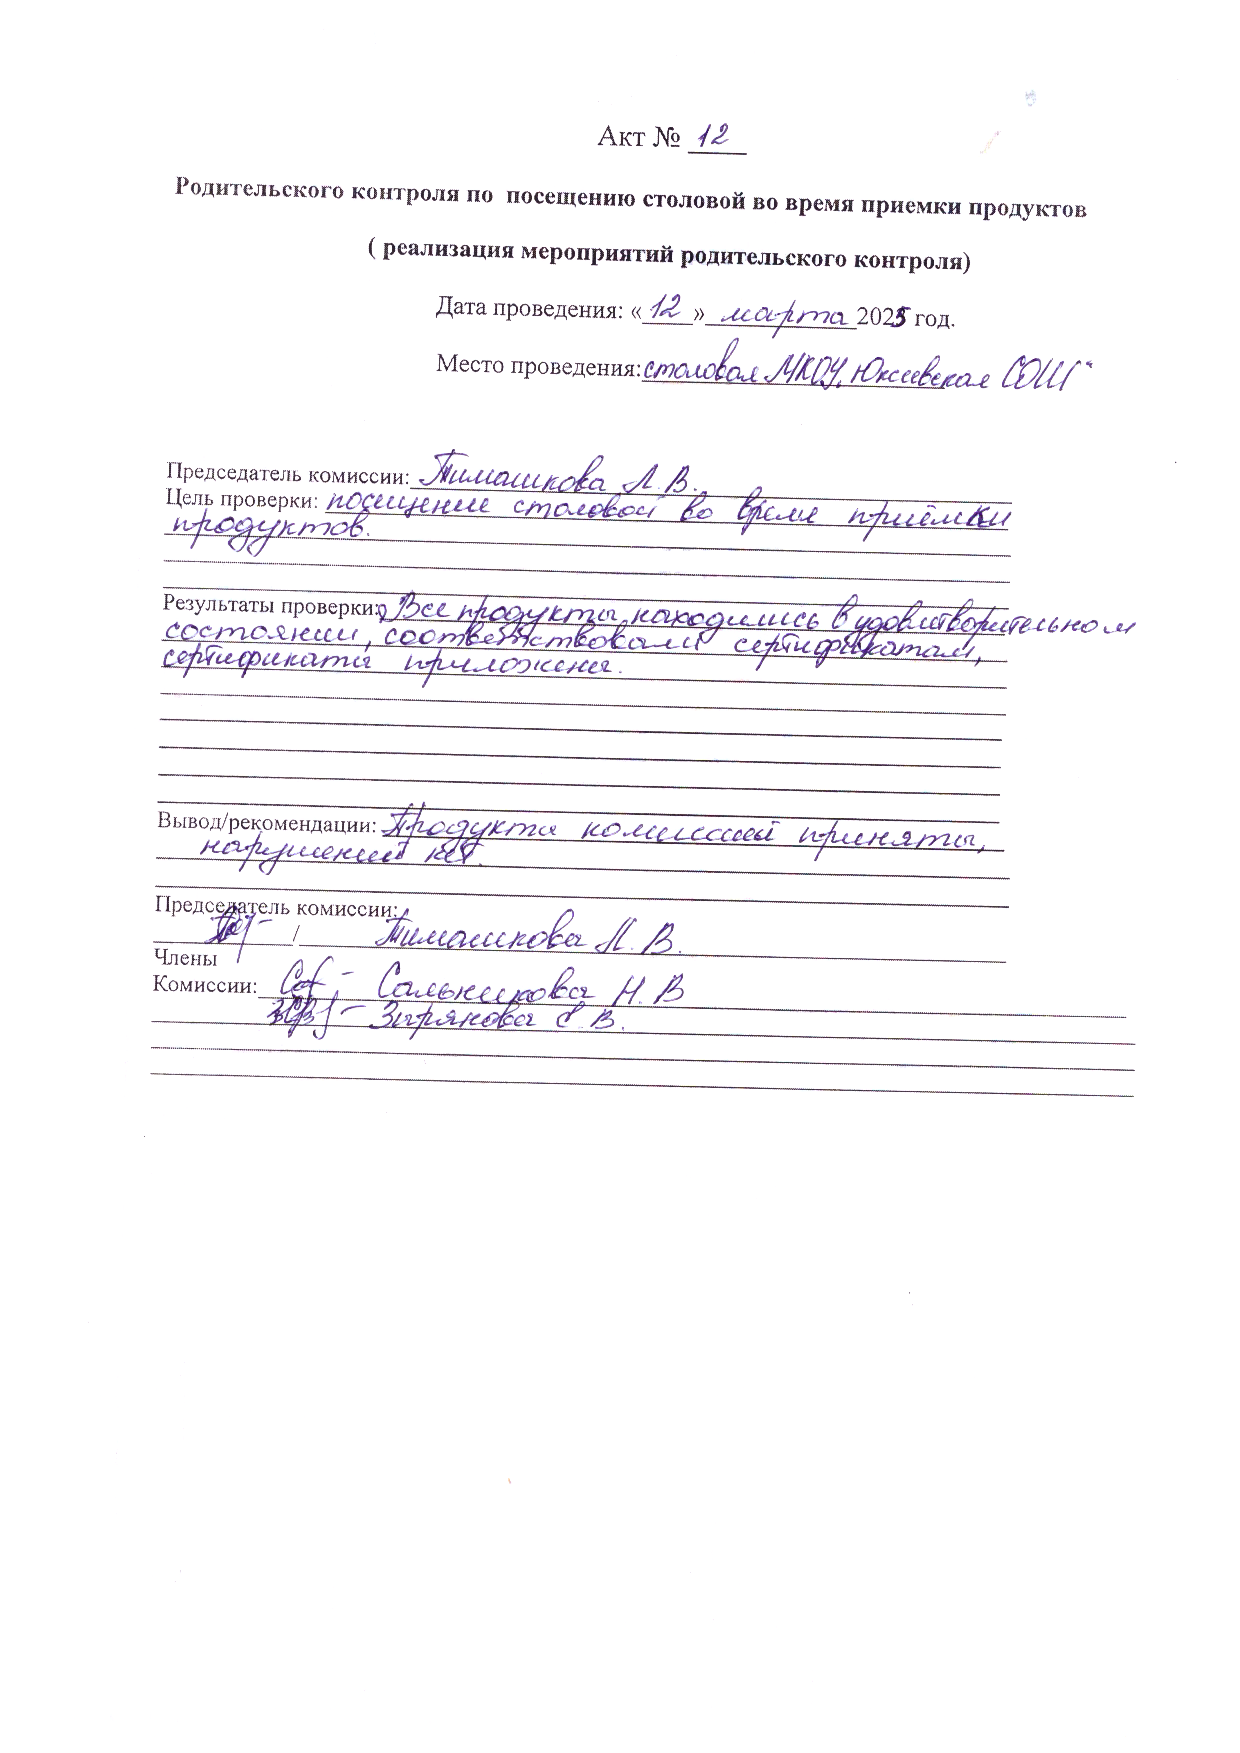 Акт № 12
Родительского контроля по посещению столовой во время приемки продуктов
( реализация мероприятий родительского контроля)
Дата проведения: «12» марта 2025 год.
Место проведения: столовая МКОУ "Юксеевская СОШ"
Председатель комиссии: Тимашкова Л.В.
Цель проверки: посещение столовой во время приёмки
продуктов.
Результаты проверки: Все продукты находились в удовлетворительном
состоянии, соответствовали сертификатам,
сертификаты приложены.
Вывод/рекомендации: Продукты комиссией приняты,
нарушений нет.
Председатель комиссии:
/ Тимашкова Л. В.
Члены
Комиссии: - Сальникова Н. В
- Зырянова Е. В.